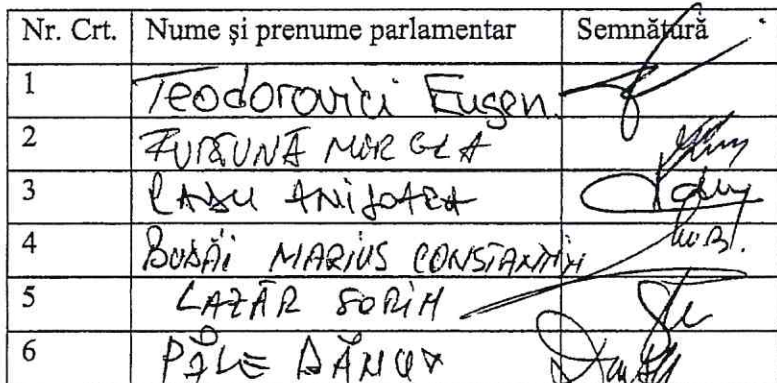 Nr. Crt. Nume şi prenume parlamentar Semnătură
1 Teodorovici Eugen
2 FURTUNĂ MIRCEA
3 RADU ANIȘOARA
4 BUDĂI MARIUS CONSTANTIN
5 LAZĂR SORIN
6 PÂLE DĂNUȚ